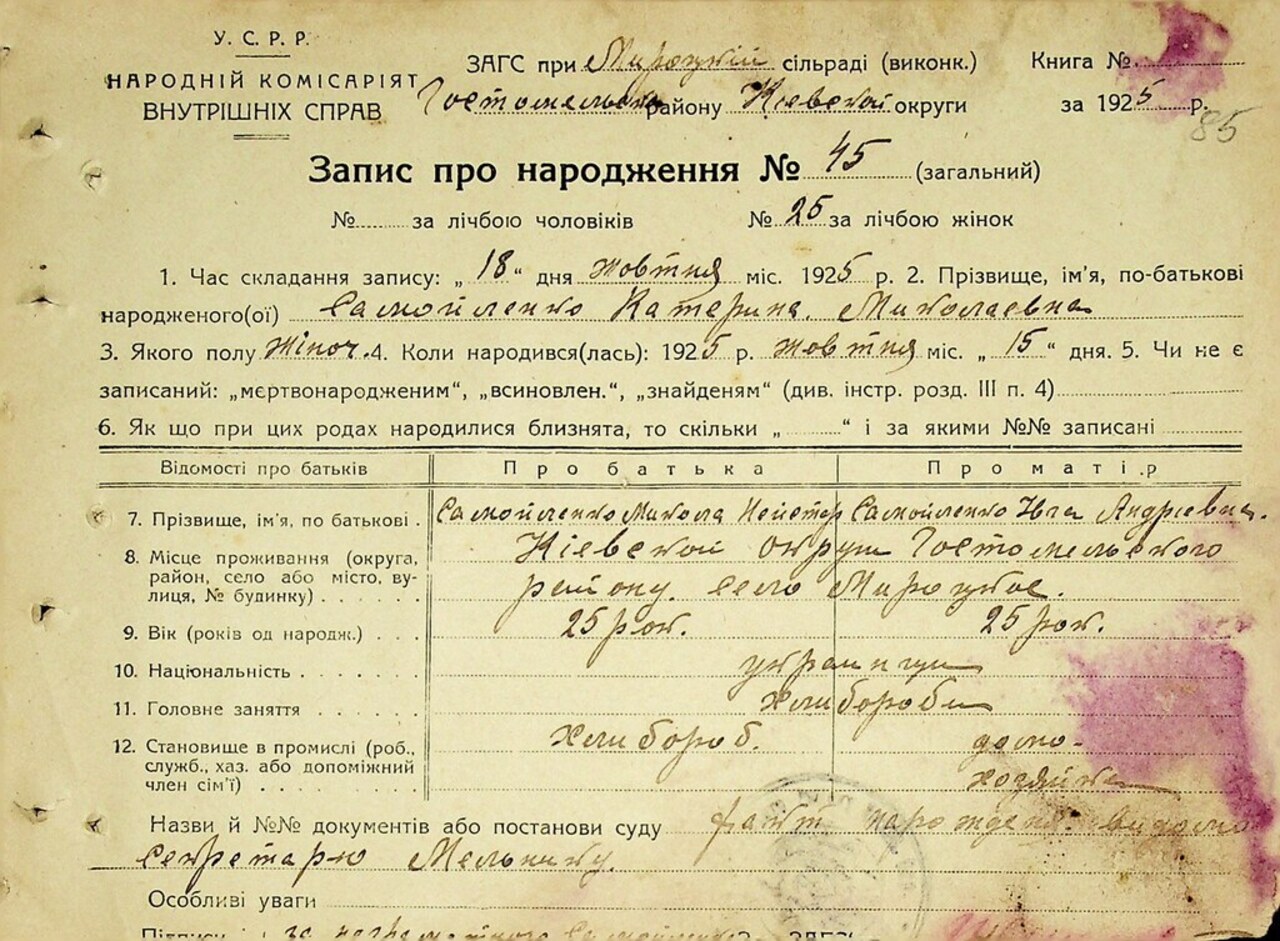 У. С. Р. Р.
НАРОДНІЙ КОМІСАРІЯТ
ВНУТРІШНІХ СПРАВ
ЗАГС при Мироцкій сільраді (виконк.)
Гостомельско району Кіевской округи
Книга №
за 1925 р.
85
Запис про народження № 45 (загальний)
№ за лічбою чоловіків № 25 за лічбою жінок
1. Час складання запису: „ 18 “ дня жовтня міс. 1925 р. 2. Прізвище, ім'я, по-батькові
народженого(ої) Самойленко Катерина Миколаевна
3. Якого полу жіноч. 4. Коли народився(лась): 1925 р. жовтня міс. „ 15 “ дня. 5. Чи не є
записаний: „мєртвонародженим“, „всиновлен.“, „знайденям“ (див. інстр. розд. III п. 4)
6. Як що при цих родах народилися близнята, то скільки „ “ і за якими №№ записані
Відомості про батьків Про батька Про матір
7. Прізвище, ім'я, по батькові . Самойленко Микола Нестер Самойленко Андріевна.
8. Місце проживання (округа, Кіевской округи Гостомельского
район, село або місто, ву-
лиця, № будинку) . . . . . . району. село Мироцкое.
9. Вік (років од народж.) . . . 25 рок. 25 рок.
10. Національність . . . . . . . украинци
11. Головне заняття . . . . . . хлибороби
12. Становище в промислі (роб., хлибороб. домо-
служб., хаз. або допоміжний
член сім'ї) . . . . . . . . . хозяйка
Назви й №№ документів або постанови суду факт видомо
секретарю Мельнику.
Особливі уваги
Підписи: за неграмотного Самойленко ЗАГС